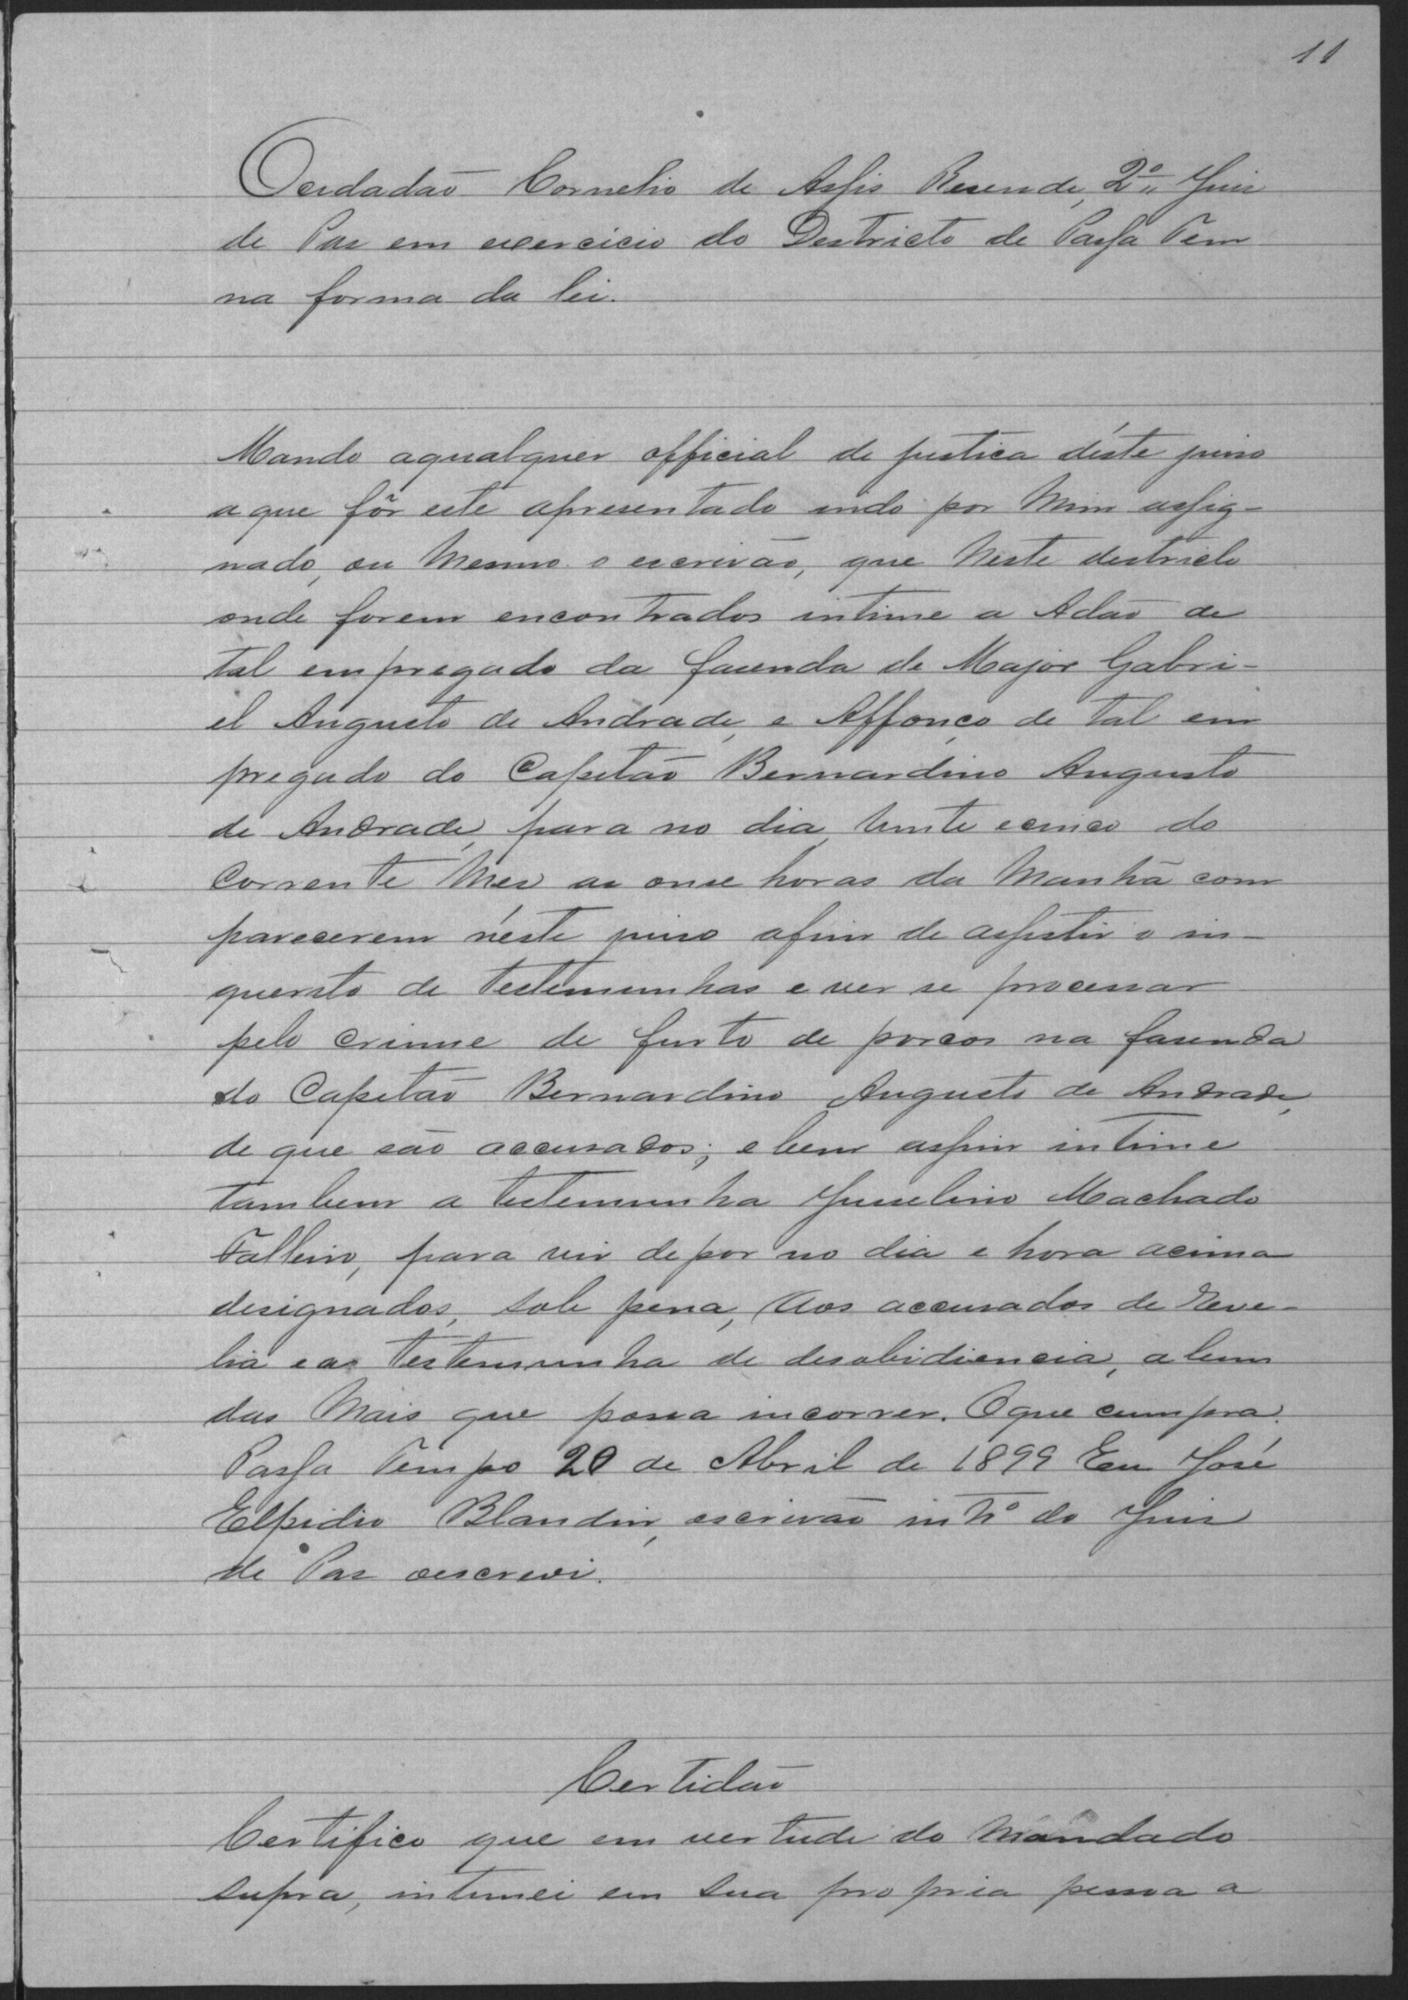 11
Ocidadão Cornelio de Assis Resende, 2º Juis
de Pas em exercicio do Destricto de Passa Tem
na forma da lei.
Mando aqualquer official de justica déste juiso
aque fôr este apresentado indo por mim assig-
nado, ou mesmo o escrivão, que neste destricto
onde forem encontrados intime a Adão de
tal empregado da fasenda de Major Gabri-
el Augusto de Andrade, e Affonço de tal em
pregado do Capitão Bernardino Augusto
de Andrade, para no dia, vinte ecinco do
Corrente mes as onse horas da manhã com
parecerem néste juiso afim de assistir o in-
quersto de testemunhas e ver se processar
pelo crime de furto de porcos na fasenda
do Capitão Bernardino Augusto de Andrade,
de que são accusados; e bem assim intime
tambem a testemunha Juscelino Machado
Falleiro, para vir depor no dia e hora acima
designados, sob pena, Aos accusados de Reve-
lia e as testemunha de desobidiencia, alem
das mais que possa incorrer. Oque cumpra.
Passa Tempo 20 de Abril de 1899 Eu José
Elpidio Blandin, escrivão intº do Juis
de Pas oescrevi.
Certidão
Certifico que em vertude do mandado
supra, intimei em sua propria pessoa a